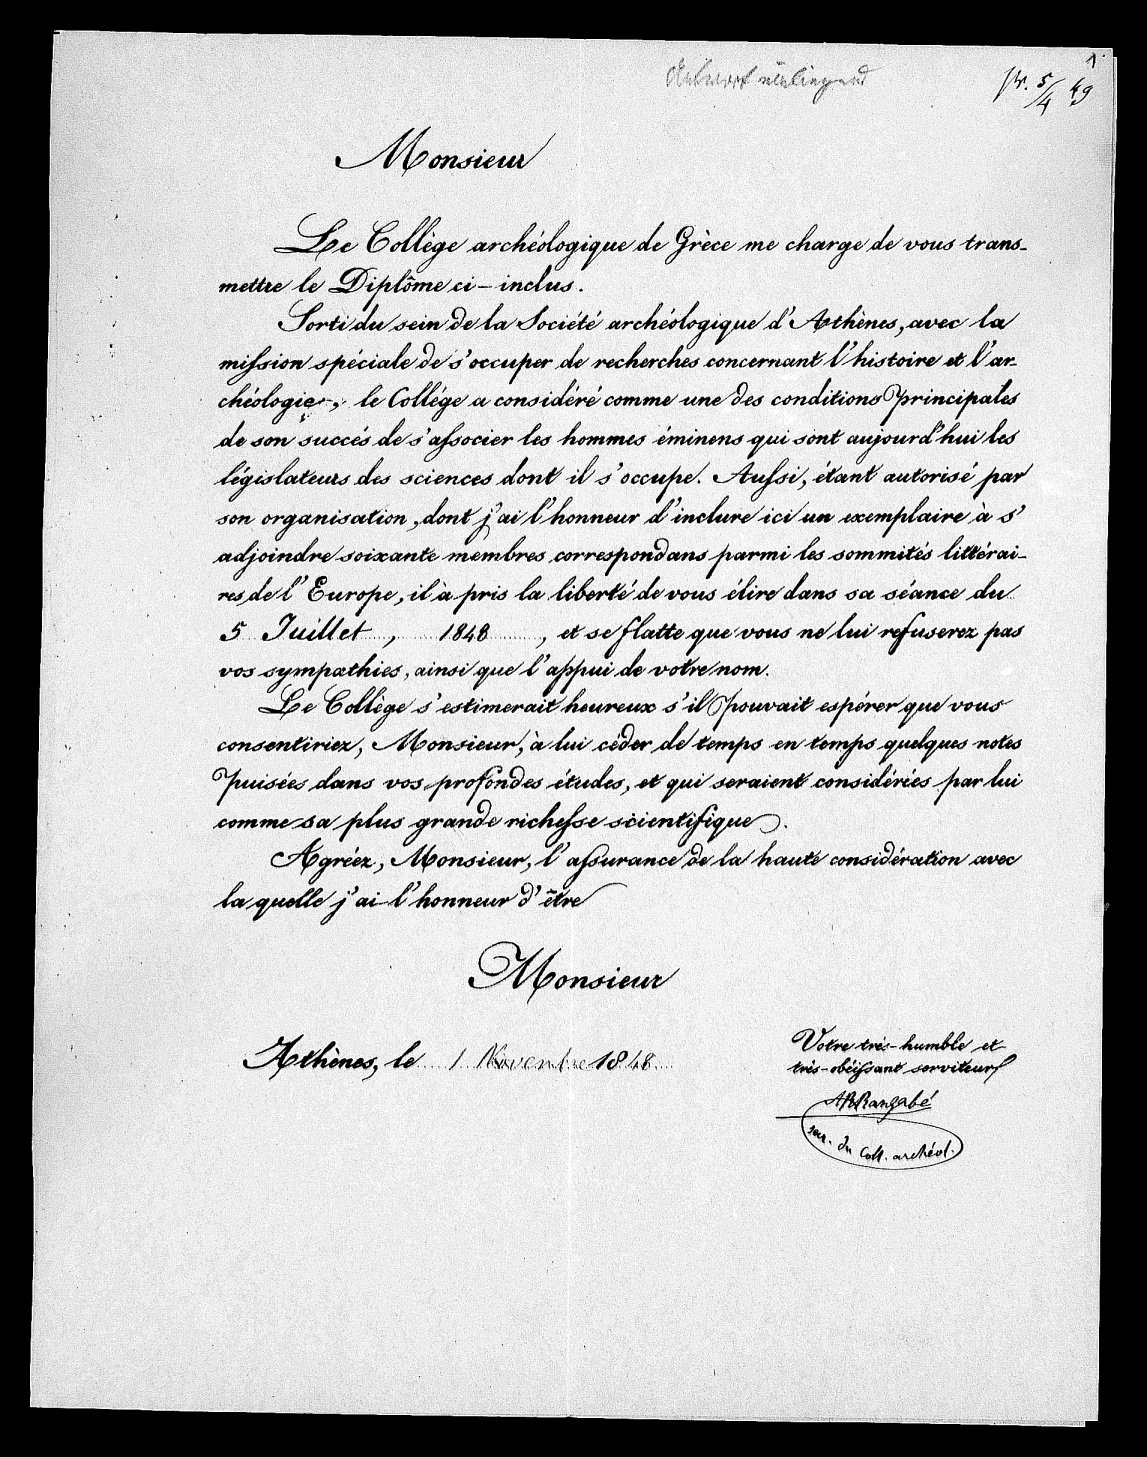 1.
Antwort einliegend
pr. 5/4 49
Monsieur
Le Collège archéologique de Grèce me charge de vous trans-
mettre le Diplôme ci-inclus.
Sorti du sein de la Société archéologique d'Athènes, avec la
mission spéciale de s'occuper de recherches concernant l'histoire et l'ar-
chéologie, le Collége a considéré comme une des conditions principales
de son succés de s'associer les hommes éminens qui sont aujourd'hui les
législateurs des sciences dont il s'occupe. Aussi, étant autorisé par
son organisation, dont j'ai l'honneur d'inclure ici un exemplaire à s'
adjoindre soixante membres correspondans parmi les sommités littérai-
res de l'Europe, il à pris la liberté de vous élire dans sa séance du
5 Juillet, 1848, et se flatte que vous ne lui refuserez pas
vos sympathies, ainsi que l'appui de votre nom.
Le Collège s'estimerait heureux s'il pouvait espérer que vous
consentiriez, Monsieur, à lui céder de temps en temps quelques notes
puisées dans vos profondes études, et qui seraient considérées par lui
comme sa plus grande richesse scientifique.
Agréez, Monsieur, l'assurance de la haute considération avec
la quelle j'ai l'honneur d'être
Monsieur
Athènes, le 1 Novembre 1848
Votre très-humble et
très-obéissant serviteur
ARRangabé
secr. du Coll. archéol.